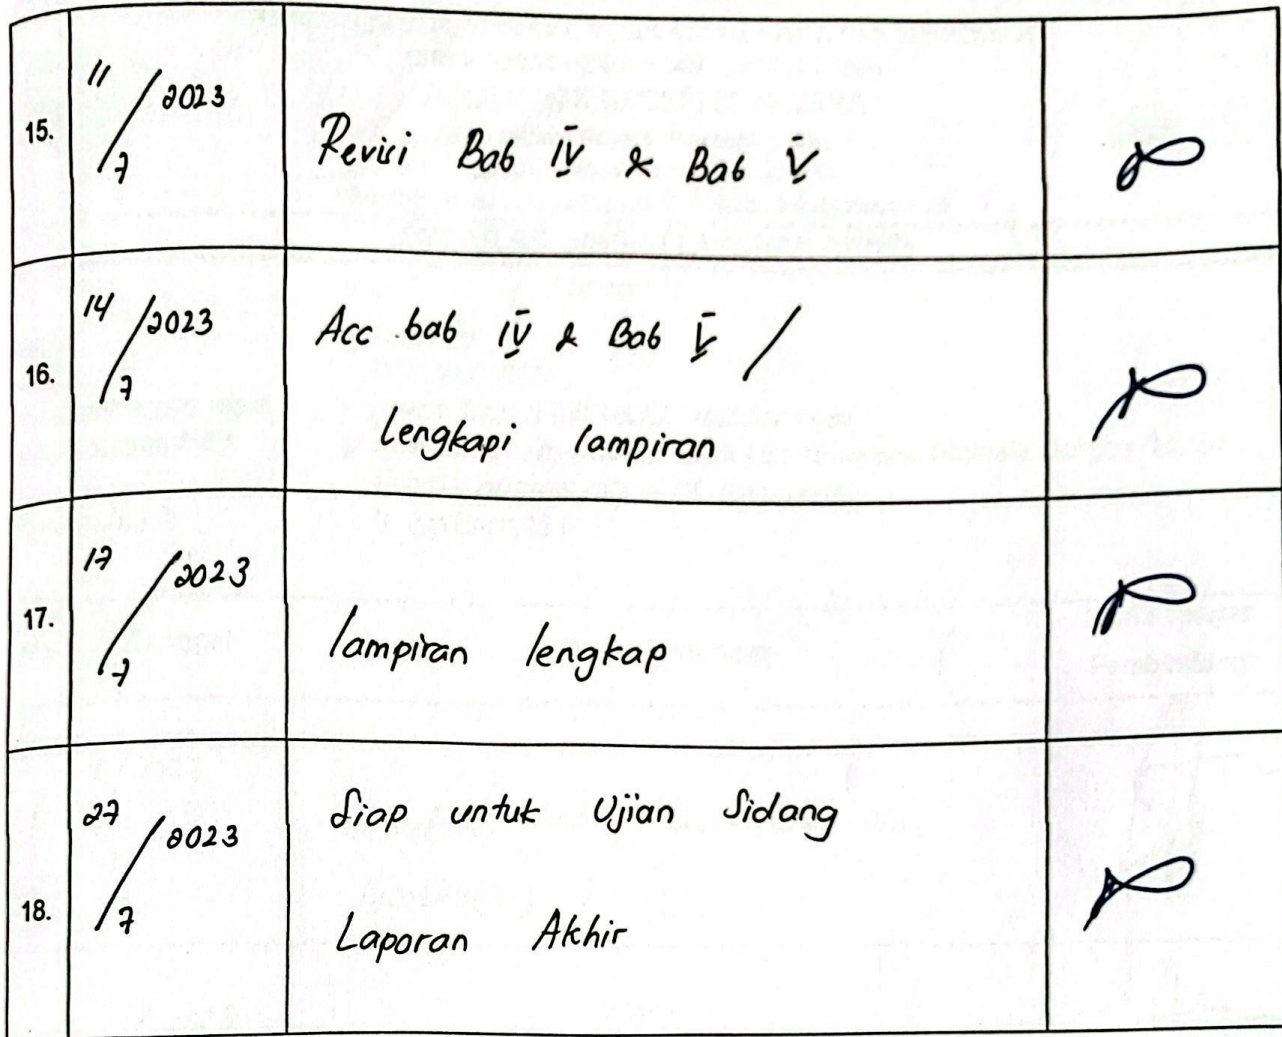 15.
11/7 2023
Revisi Bab IV & Bab V
16.
14/7 2023
Acc bab IV & Bab V /
lengkapi lampiran
17.
17/7 2023
lampiran lengkap
18.
27/7 2023
Siap untuk Ujian Sidang
Laporan Akhir